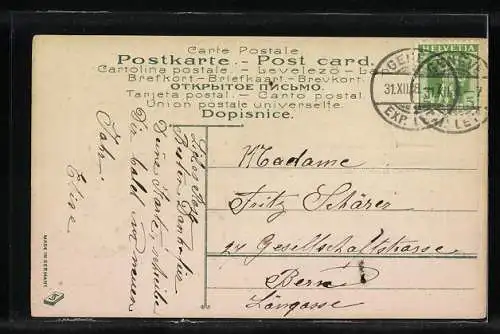 Carte Postale
Postkarte. - Post card.
Cartolina postale. - Levelező-La
Brefkort - Briefkaart - Brevkort.
ОТКРЫТОЕ ПИСЬМО.
Tarjeta postal. - Carto postal
Union postale universelle.
Dopisnice.
HELVETIA
5
31.XII.08
31.XII.
7
EXP. LET
Madame
Fritz Schärer
Gesellschaftstrasse
Bern
Länggasse
Besten Dank für
Deine Karte,
Dir bald im neuen
Jahr.
MADE IN GERMANY